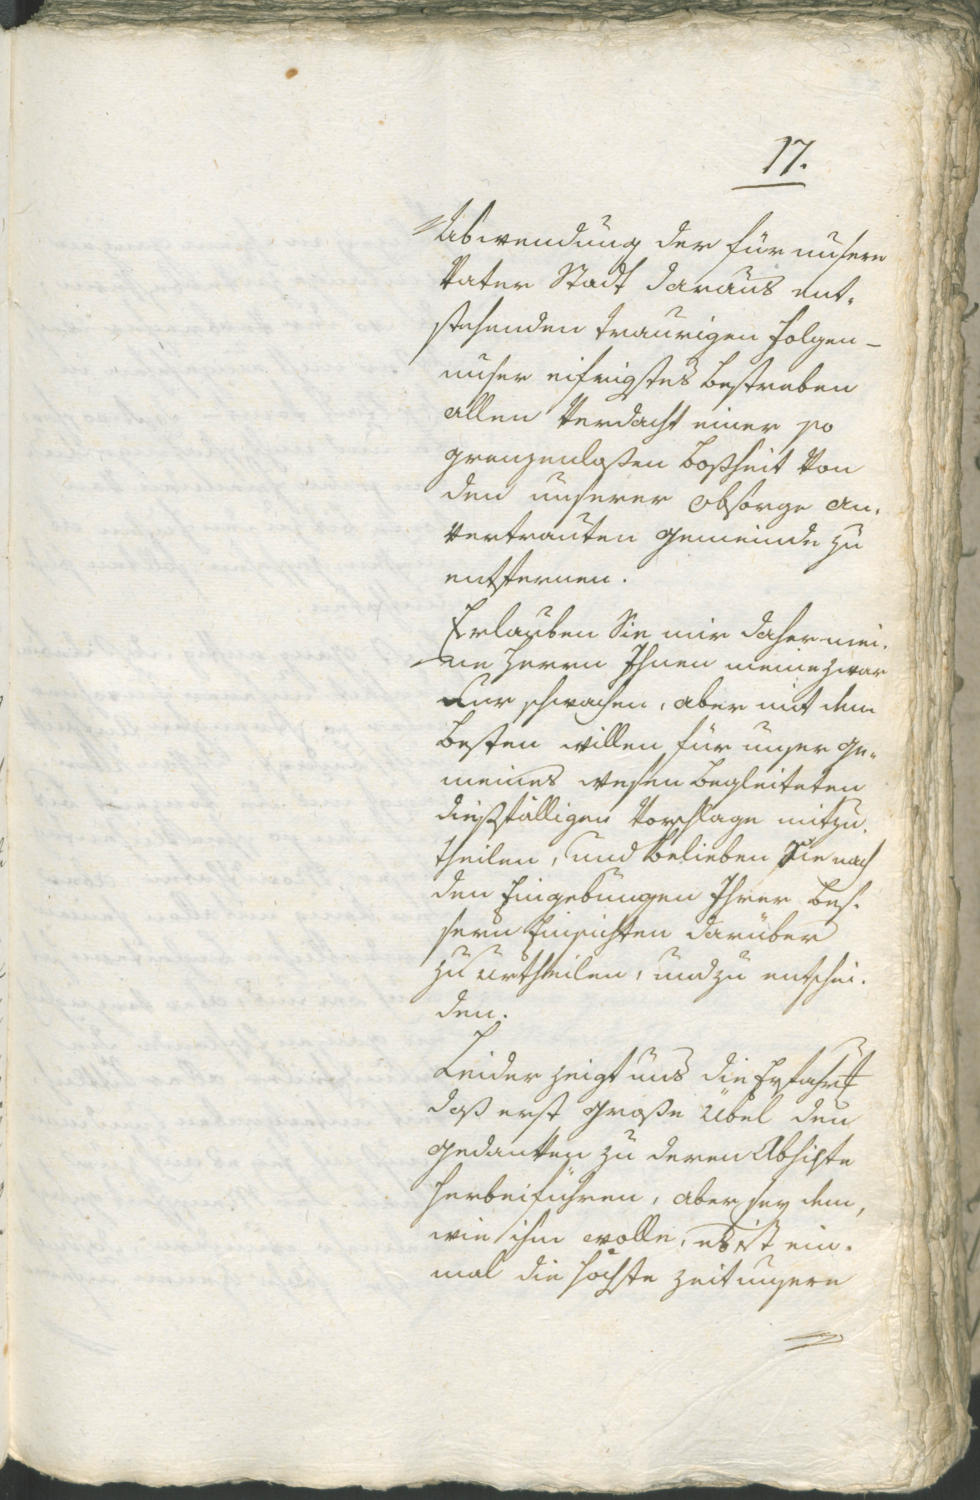 17.
Abwendung der für unsere
Vater Stadt daraus ent-
stehenden traurigen Folgen –
unser eifrigstes Bestreben
allen Verdacht einer so
grenzenloßen Boßheit von
den unserer Obsorge an-
vertrauten Gemeinde zu
entfernen.
Erlauben Sie mir daher mei-
ne Herrn Ihnen meine zwar
nur schwachen, aber mit dem
besten willen für unser ge-
meines wesen begleiteten
dießfälligen Vorschläge mitzu-
theilen, und belieben Sie nach
den Eingebungen Ihrer bes-
sern Einsichten darüber
zu urtheilen, und zu entschei-
den.
Leider zeigt uns die
daß erst große Übel den
gedanken zu deren Abhilfe
herbeiführen, aber sey dem,
wie ihm wolle, es ist ein-
mal die höchste Zeit unsere